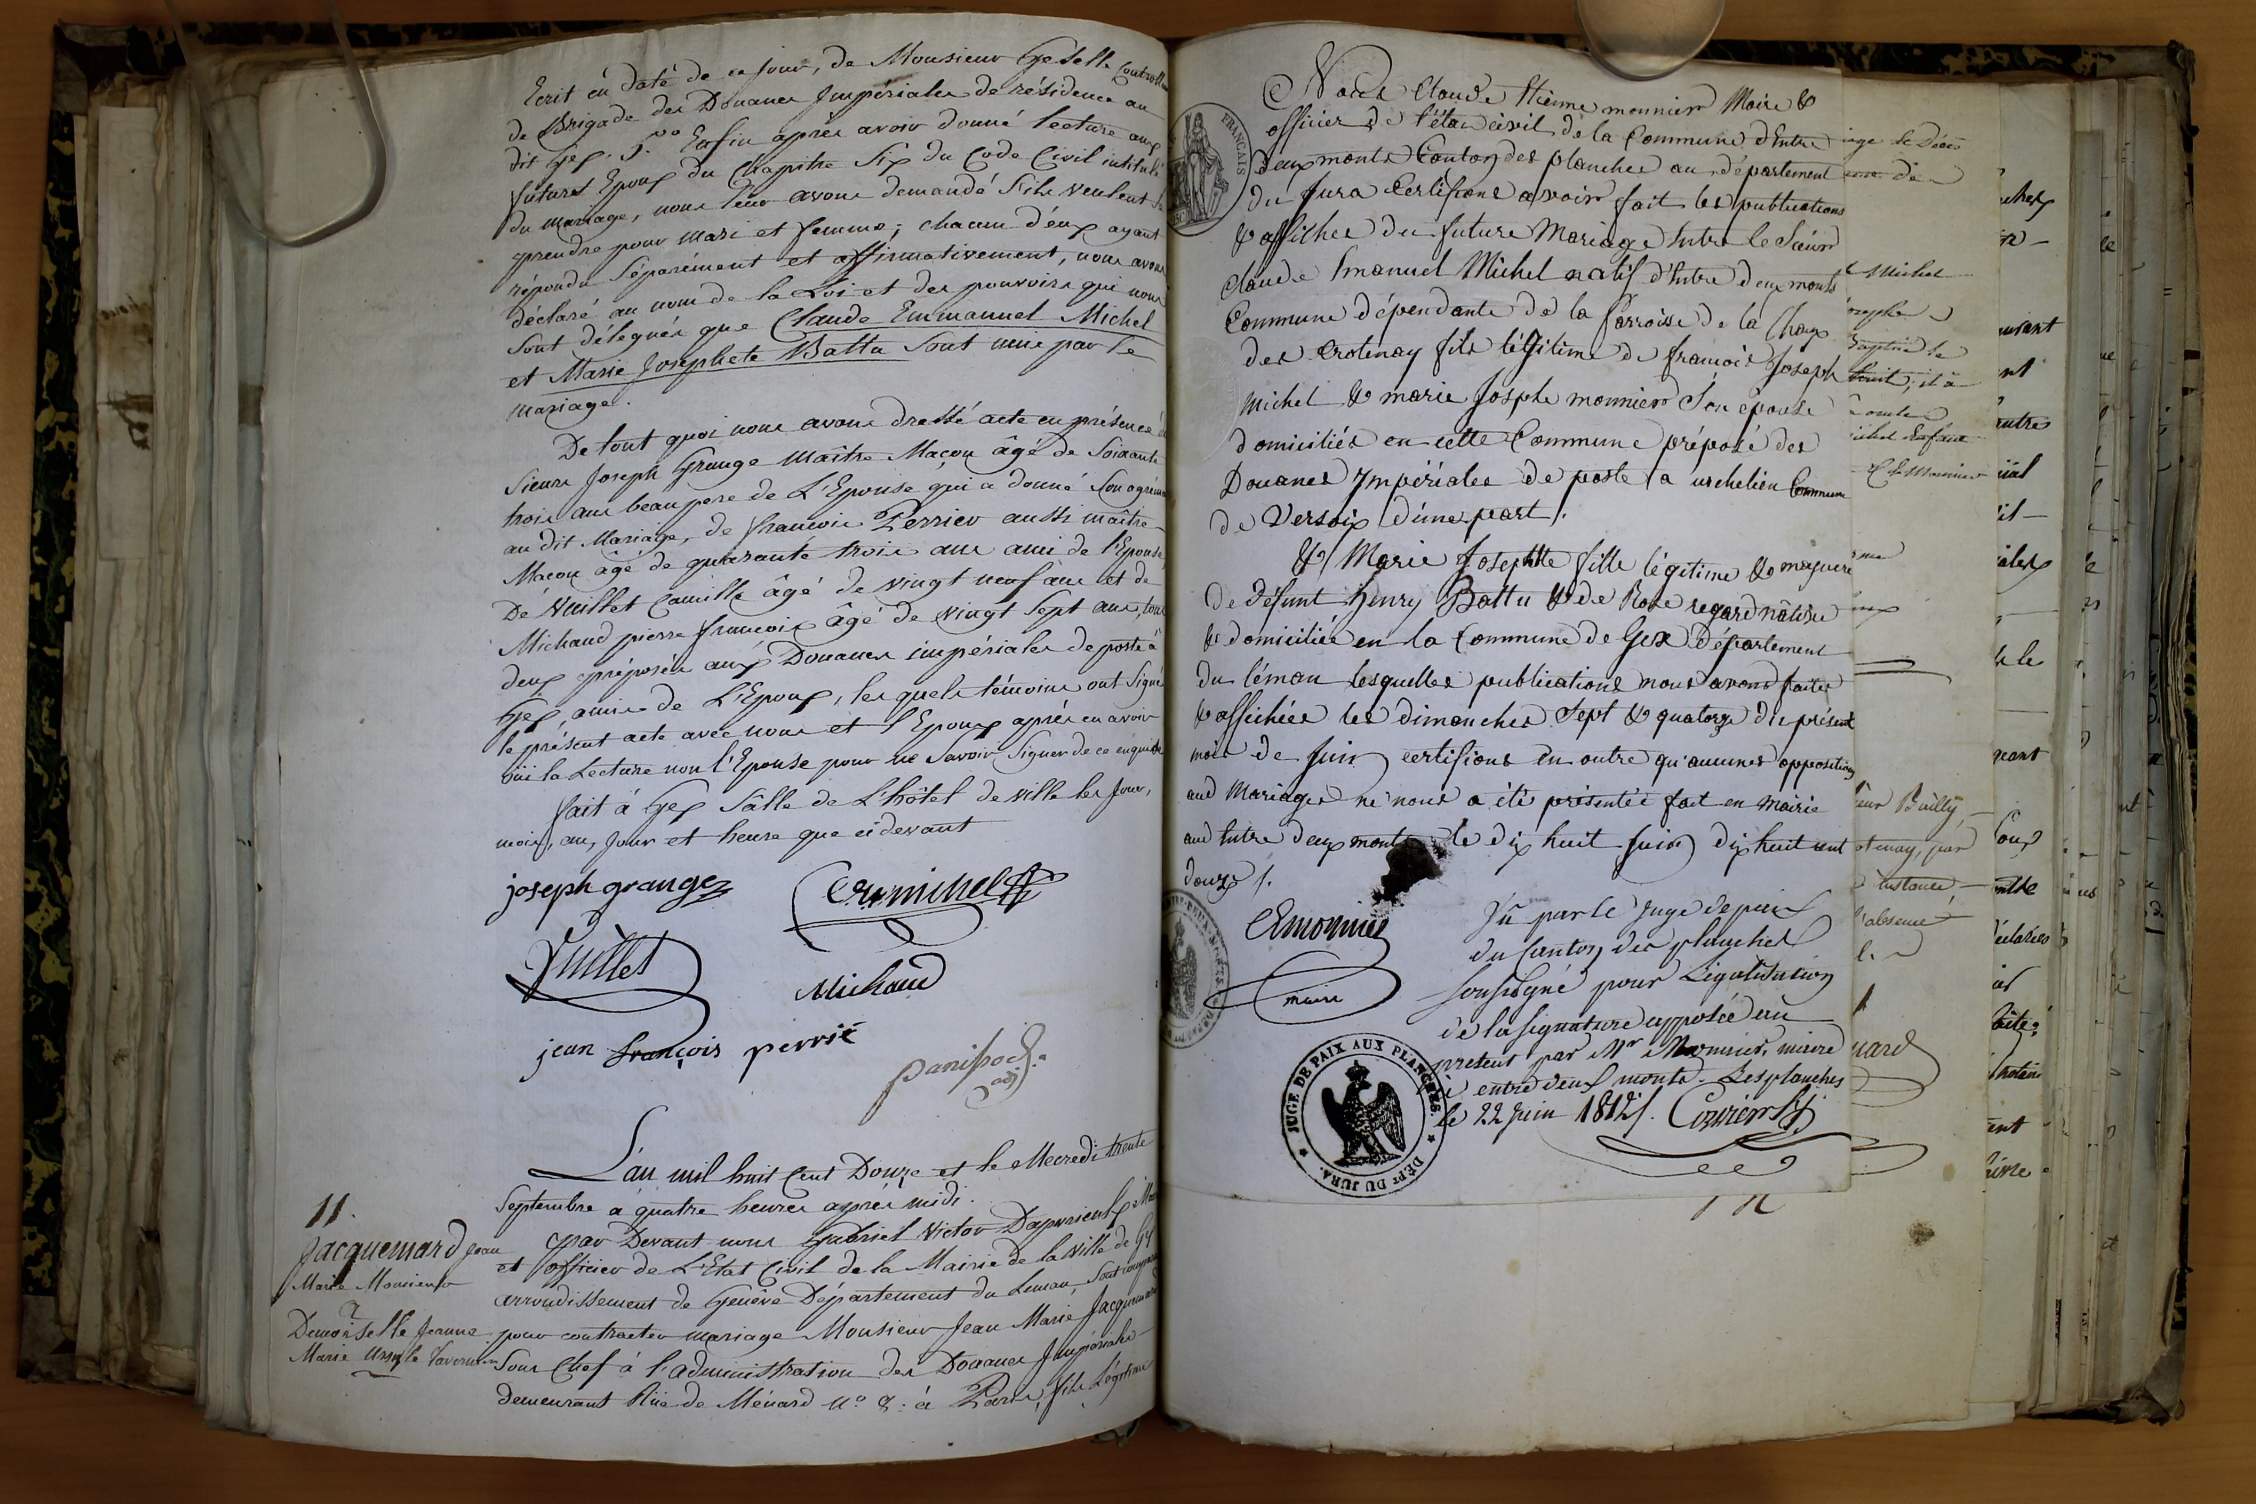 Ecrit en daté de ce jour, de Monsieur Gedelle Controlleur
de Brigade des Douanes Impériales de résidence au
dit Gex. 5.º Enfin après avoir donné lecture aux
futurs Epoux du Chapitre Six du Code Civil intitulé
du mariage, nous leur avons demandé S'ils veulent se
prendre pour mari et femme; chacun d'eux ayant
répondu Séparément et affirmativement, nous avons
déclaré au nom de la Loi et des pouvoirs qui nous
sont délegués que Claude Emmanuel Michel
et Marie Josephete Battu sont unis par le
mariage.
De tout quoi nous avons dressé acte en présence de
Sieurs Joseph Grange maître Maçon âgé de Soixante
trois ans beaupere de L'Epouse qui a donné Son agrément
au dit Mariage, de françois Perrier aussi maître
Maçon âgé de quarante trois ans ami de l'Epouse,
De Vuillet Camille âgé de vingt neuf ans et de
Michaud pierre françois âgé de vingt Sept ans, tous
deux préposés aux Douanes impériales de poste à
Gex, amis de L'Epoux, les quels témoins ont Signé
le présent acte avec nous et l'Epoux après en avoir
oüi la Lecture non l'Epouse pour ne Savoir Signer de ce enquise
fait à Gex Sâlle de L'hôtel de ville les Jour,
mois, an, Jour et heure que cidevant
joseph grange
Cemichel
Vuillet
Michaud
jean françois perrié
panissod
adj
11.
Jacquemard Jean
Marie Monsieur
&
Demoiselle Jeanne
Marie Ursule Tavernier
L'an mil huit Cent Douze et le Mecredi trente
Septembre à quatre heures après midi.
par Devant nous Gabriel Victor Maire
et officier de L'Etat Civil de la Mairie de la ville de Gex
arrondissement de Genève Département du Leman, Sont comparus
pour contracter mariage Monsieur Jean Marie Jacquemard
Sous Chef à l'administration des Douanes Impériales
demeurant Rüe de Ménard nº 8. à Paris, fils Légitime
FRANÇAIS
Nous Claude Etienne monnier Maire &
officier de l'état civil de la Commune d'Entre
deux monts Canton des planches au département
du Jura Certifions avoir fait les publications
& affiches du future Mariage Entre le Sieur
Claude Emanuel Michel natif d'Entre deux monts
Commune dépendante de la Parroisse de la Chaux
des Crotenay fils légitime de françois Joseph
Michel & marie Josphe monnier Son épouse
domiciliés en cette Commune préposé des
Douanes Impériales de poste a Commune
de Versoix d'une part.
& Marie Josephtte fille légitime & majeure
de défunt henry Battu & de Rose regard nâtive
& domiciliée en la Commune de Gex Département
du léman Lesquelles publications nous avons faites
& affichées les dimanches Sept & quatorze du présent
mois de Juin certifions en outre qu'aucunes oppositions
aud Mariage ne nous a été présentée fait en mairie
aud Entre deux monts le dix huit Juin dix huit cent
douze.
CEmonnier
maire
Vû par le juge de paix
du Canton des planches
soussigné pour Légalisation
de la signature apposée au
present par Mr Monnier, maire
à entre deux monts. Les planches
le 22 juin 1812.
JUGE DE PAIX AUX PLANCHES. DÉPt DU JURA.
Michel
Bailly,